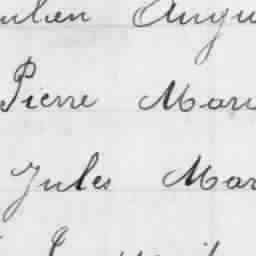 ulien Augu
Pierre Mari
Jules Mar